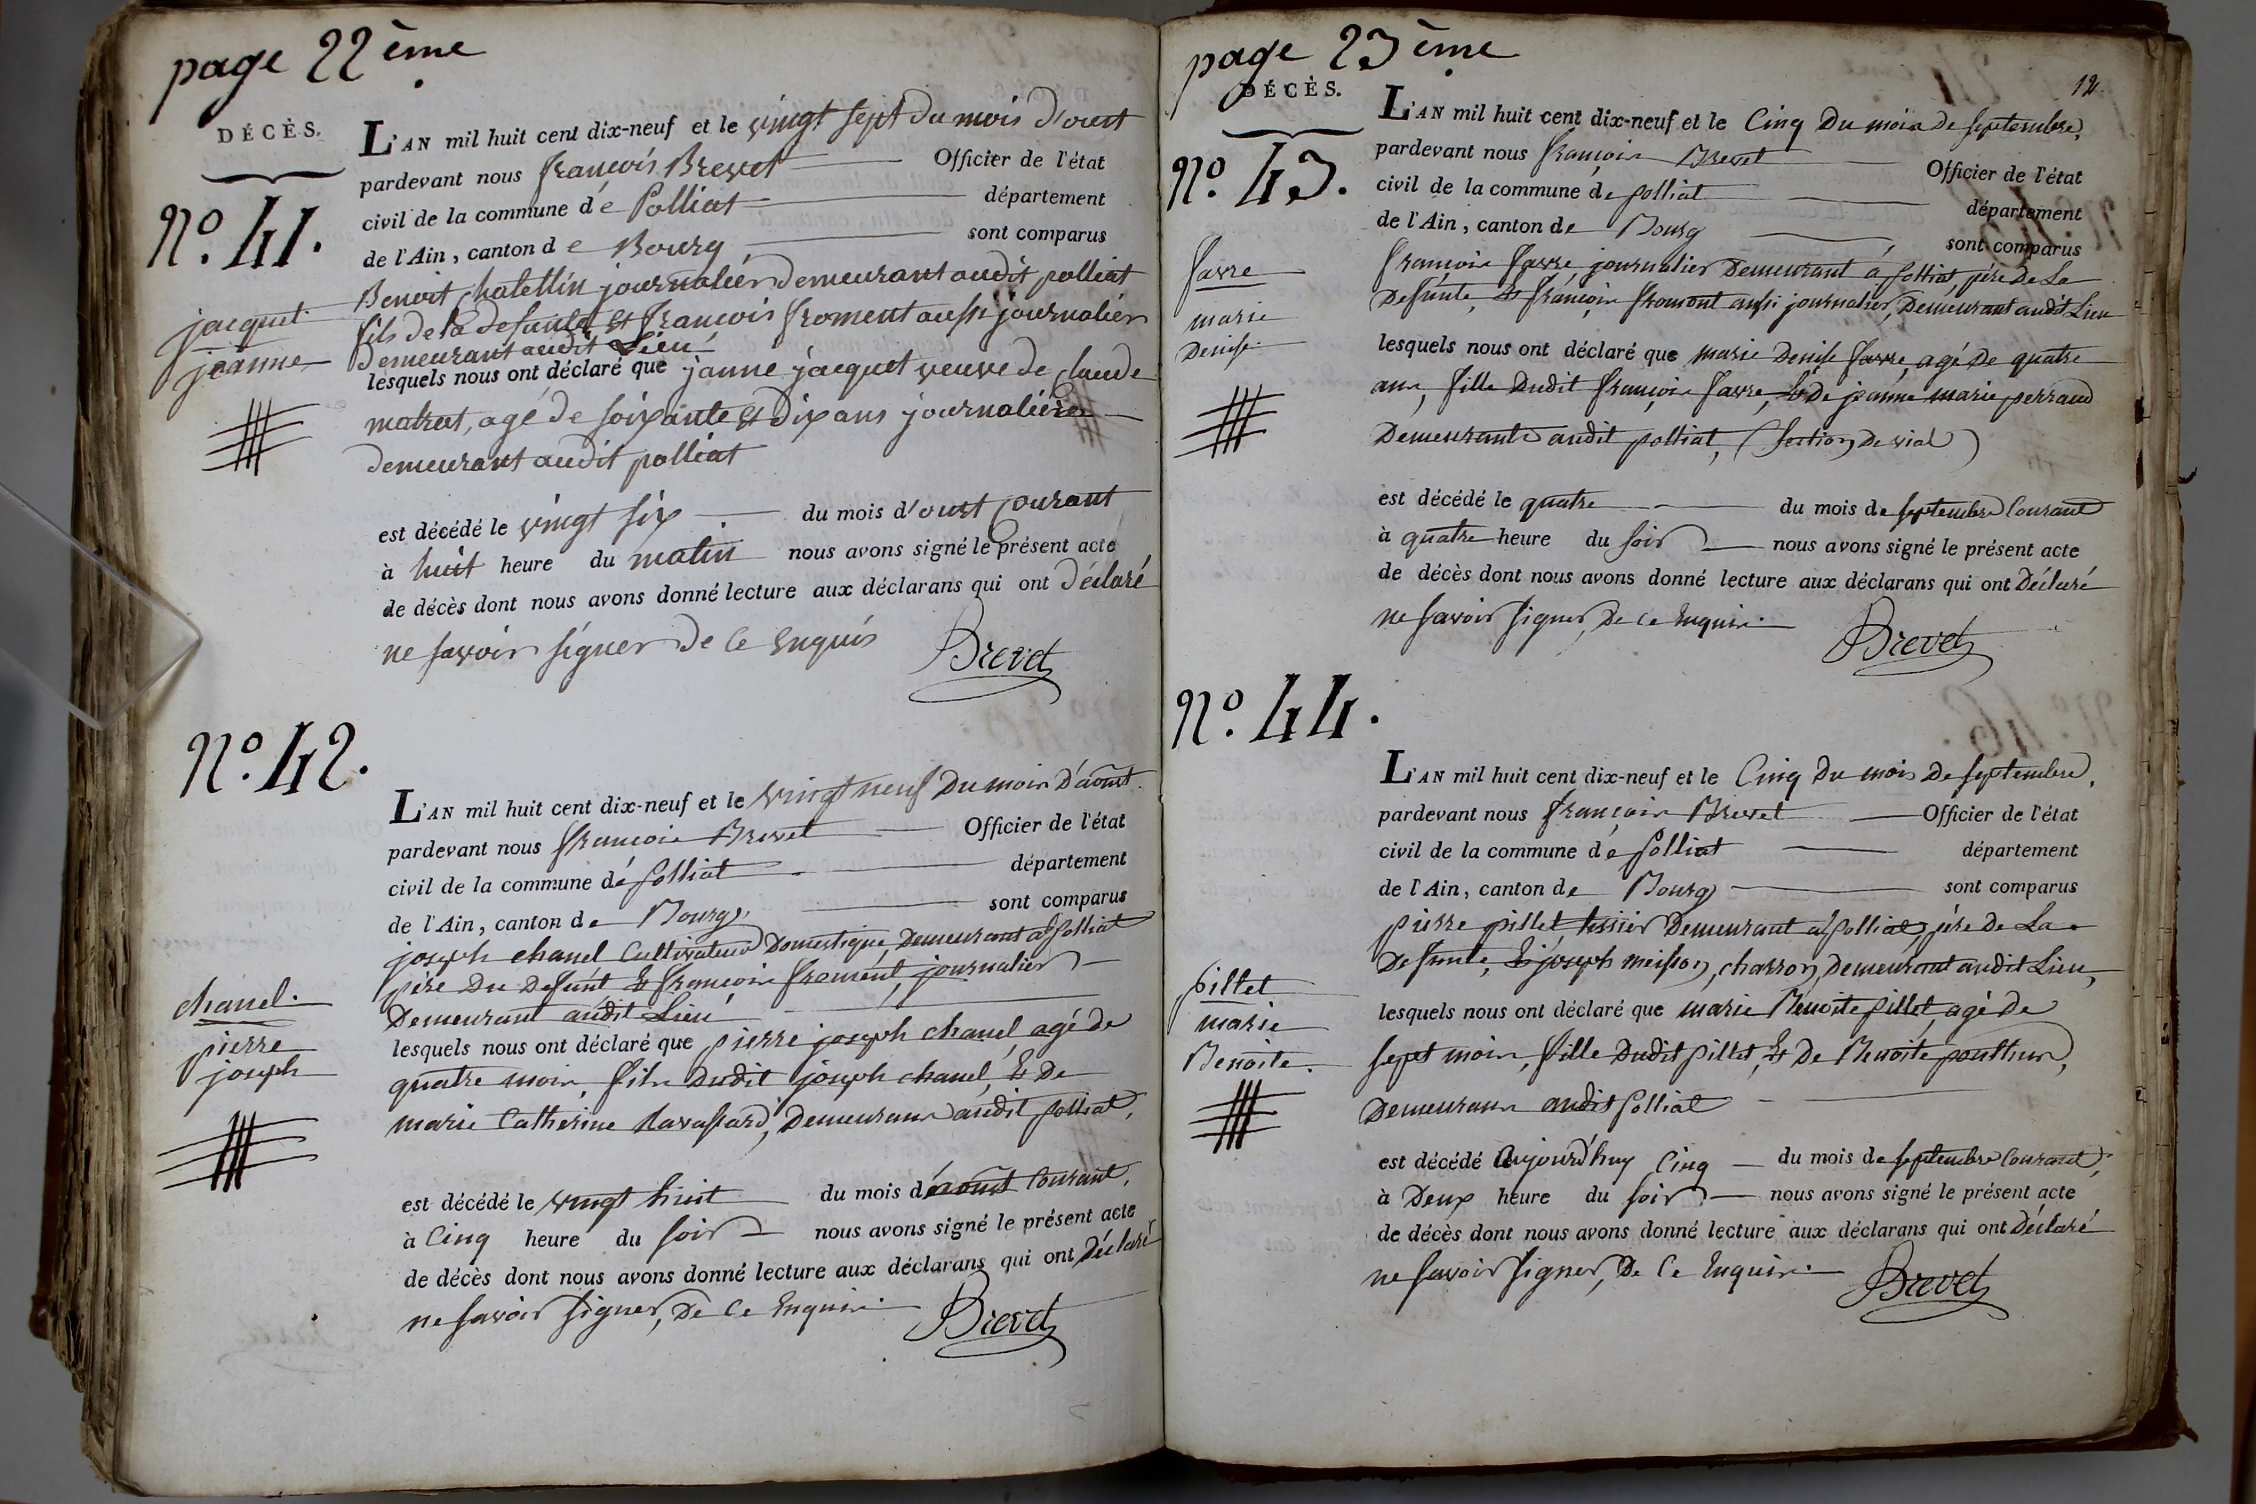 page 22ème
DÉCÈS.
N.º 41.
jacquet
jeanne
L'AN mil huit cent dix-neuf et le vingt sept du mois d'oust
pardevant nous françois Brevet Officier de l'état
civil de la commune de Polliat département
de l'Ain, canton de Bourg sont comparus
Benoit chatellin journaliér demeurant audit polliat
fils de la defunte et françois froment aussi journaliér
demeurant audit Lieu
lesquels nous ont déclaré que janne jacquet veuve de claude
agé de soixante et dix ans journaliére
demeurant audit polliat
est décédé le vingt six du mois d'oust Courant
à huit heure du matin nous avons signé le présent acte
de décès dont nous avons donné lecture aux déclarans qui ont déclaré
ne savoir signer de ce enquis
Brevet
N.º 42.
chanel.
pierre
joseph
L'AN mil huit cent dix-neuf et le vingt neuf Du mois D'aoust
pardevant nous françois Brevet Officier de l'état
civil de la commune de polliat département
de l'Ain, canton de Bourg, sont comparus
joseph chanel Cultivateur Domestique, Demeurant à polliat
pére Du Defunt et françois froment, journalier
Demeurant audit Lieu
lesquels nous ont déclaré que pierre joseph chanel, agé de
quatre mois, fils Dudit joseph chanel, et De
marie Catherine Ravassard, Demeurans audit polliat,
est décédé le vingt huit du mois d'aoust Courant,
à Cinq heure du soir nous avons signé le présent acte
de décès dont nous avons donné lecture aux déclarans qui ont Déclaré
ne savoir signer, De ce Enquis.
Brevet
page 23ème
12.
DÉCÈS.
N.º 43.
favre
marie
Denise
L'AN mil huit cent dix-neuf et le Cinq Du mois de septembre,
pardevant nous françois Brevet Officier de l'état
civil de la commune de polliat département
de l'Ain, canton de Bourg sont comparus
françois favre, journalier Demeurant à polliat, pére De La
Defunte, et françois fromont aussi journalier, Demeurant audit Lieu
lesquels nous ont déclaré que marie Denise favre, agé De quatre
ans, fille Dudit françois favre, et De jeanne marie perraud
Demeurants audit polliat, (section De vial)
est décédé le quatre du mois de septembre Courant
à quatre heure du soir nous avons signé le présent acte
de décès dont nous avons donné lecture aux déclarans qui ont Déclaré
ne savoir signer, De ce Enquis.
Brevet
N.º 44.
pillet
marie
Benoite.
L'AN mil huit cent dix-neuf et le Cinq Du mois De septembre,
pardevant nous françois Brevet Officier de l'état
civil de la commune de polliat département
de l'Ain, canton de Bourg sont comparus
pierre pillet tissier Demeurant à polliat, pére De La
Defunte, et joseph meisson, charron, Demeurant audit Lieu,
lesquels nous ont déclaré que marie Benoite pillet, agé de
sept mois, fille Dudit pillet, et De Benoite
Demeurans audit polliat
est décédé aujourd'huy Cinq du mois de septembre Courant,
à Deux heure du soir nous avons signé le présent acte
de décès dont nous avons donné lecture aux déclarans qui ont Déclaré
ne savoir signer, De Ce Enquis.
Brevet